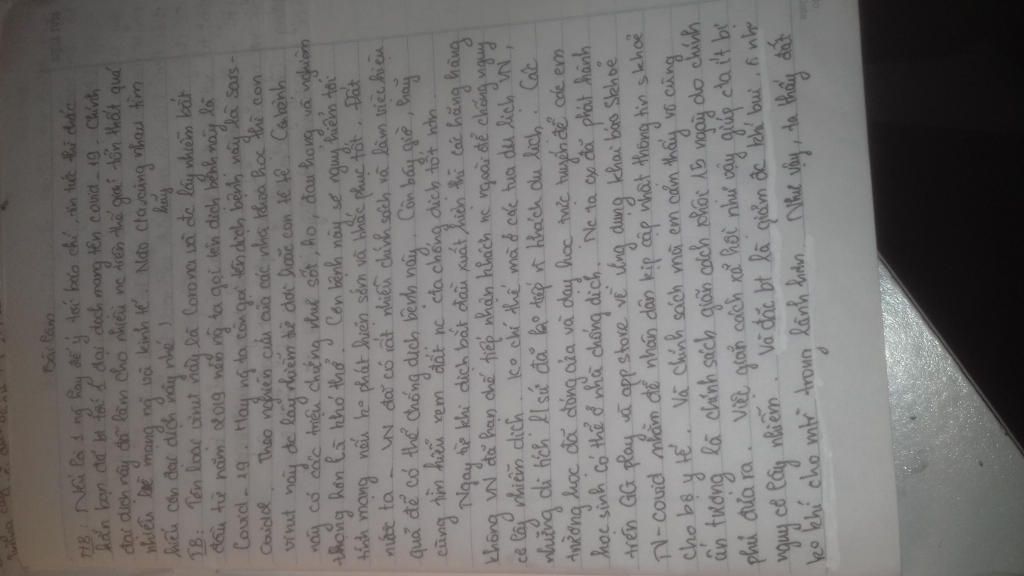 Bài làm
MB: Nếu là 1 ng hay để ý tới báo chí, tin tức thì chắc
hẳn bạn đã bt tới đại dịch mang tên covid-19. Chính
đại dịch này đã làm cho nhiều nc trên thế giới tổn thất quá
nhiều về mạng ng và kinh tế. Nào chúng cùng nhau tìm
hiểu con đại dịch này nhé! hãy
TB: Tên loài virut này là Corona và đc lây nhiễm bắt
đầu từ năm 2019 nên ng ta gọi tên dịch bệnh này là
Covid-19. Hay ng ta còn gọi tên dịch bệnh này là Sars-
Covid. Theo nghiên cứu của các nhà khoa học thì con
virut này đc lây nhiễm từ dơi hoặc con tê tê. Cănbệnh
này có các triệu chứng như sốt, ho, đau họng và nghiêm
trọng hơn là khó thở. Con bệnh này sẽ nguy hiểm tới
tích mạng nếu ko phát hiện sớm và khắc phục tốt. Đất
nước ta - VN đã có rất nhiều chính sách và làm việc hiệu
quả để có thể chống dịch bệnh này. Còn bây giờ, hãy
cùng tìm hiểu xem đất nc ta chống dịch tốt
Ngay từ khi dịch bắt đầu xuất hiện thì các hãng hàng
không VN đã hạn chế tiếp nhận khách nc ngoài để chống nguy
cơ lây nhiễm dịch. Ko chỉ thế mà ở các tua du lịch VN,
những di tích l/sử đã ko tiếp vị khách du lịch. Các
trường học đã đóng cửa và dạy học trực tuyến để các em
học sinh có thể ở nhà chống dịch. Nc ta đã phát hành
trên GG play và app store về ứng dụng khai báo skhoẻ
N-covid nhằm để nhân dân kịp cập nhật thông tin skhoẻ
cho bộ y tế. Và chính sách mà em cảm thấy vô cùng
ấn tượng là chính sách giãn cách ngay do chính
phủ đưa ra. Việc giãn cách xã hội như vậy giúp cta ít bị
nguy cơ lây nhiễm. Và đặc bt là giảm ức khí bụi, ô nhr
ko khí cho mtr trong lành hơn. Như vậy, ta thấy đất